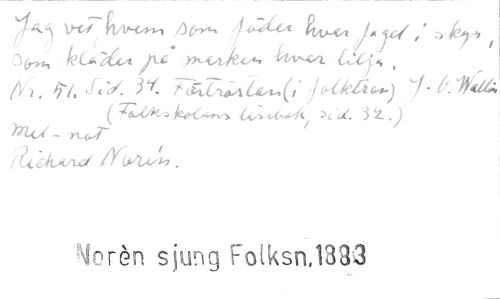 Jag vet, hvem som föder hvar fogel i skyn,
som kläder på marken hvar lilja.
Nr. 51. Sid. 34. Förtröstan (i folkton) J. O. Wallin
(Folkskolans läsebok, sid. 32.)
Mel-not
Richard Norén.
Norèn sjung Folksn. 1883